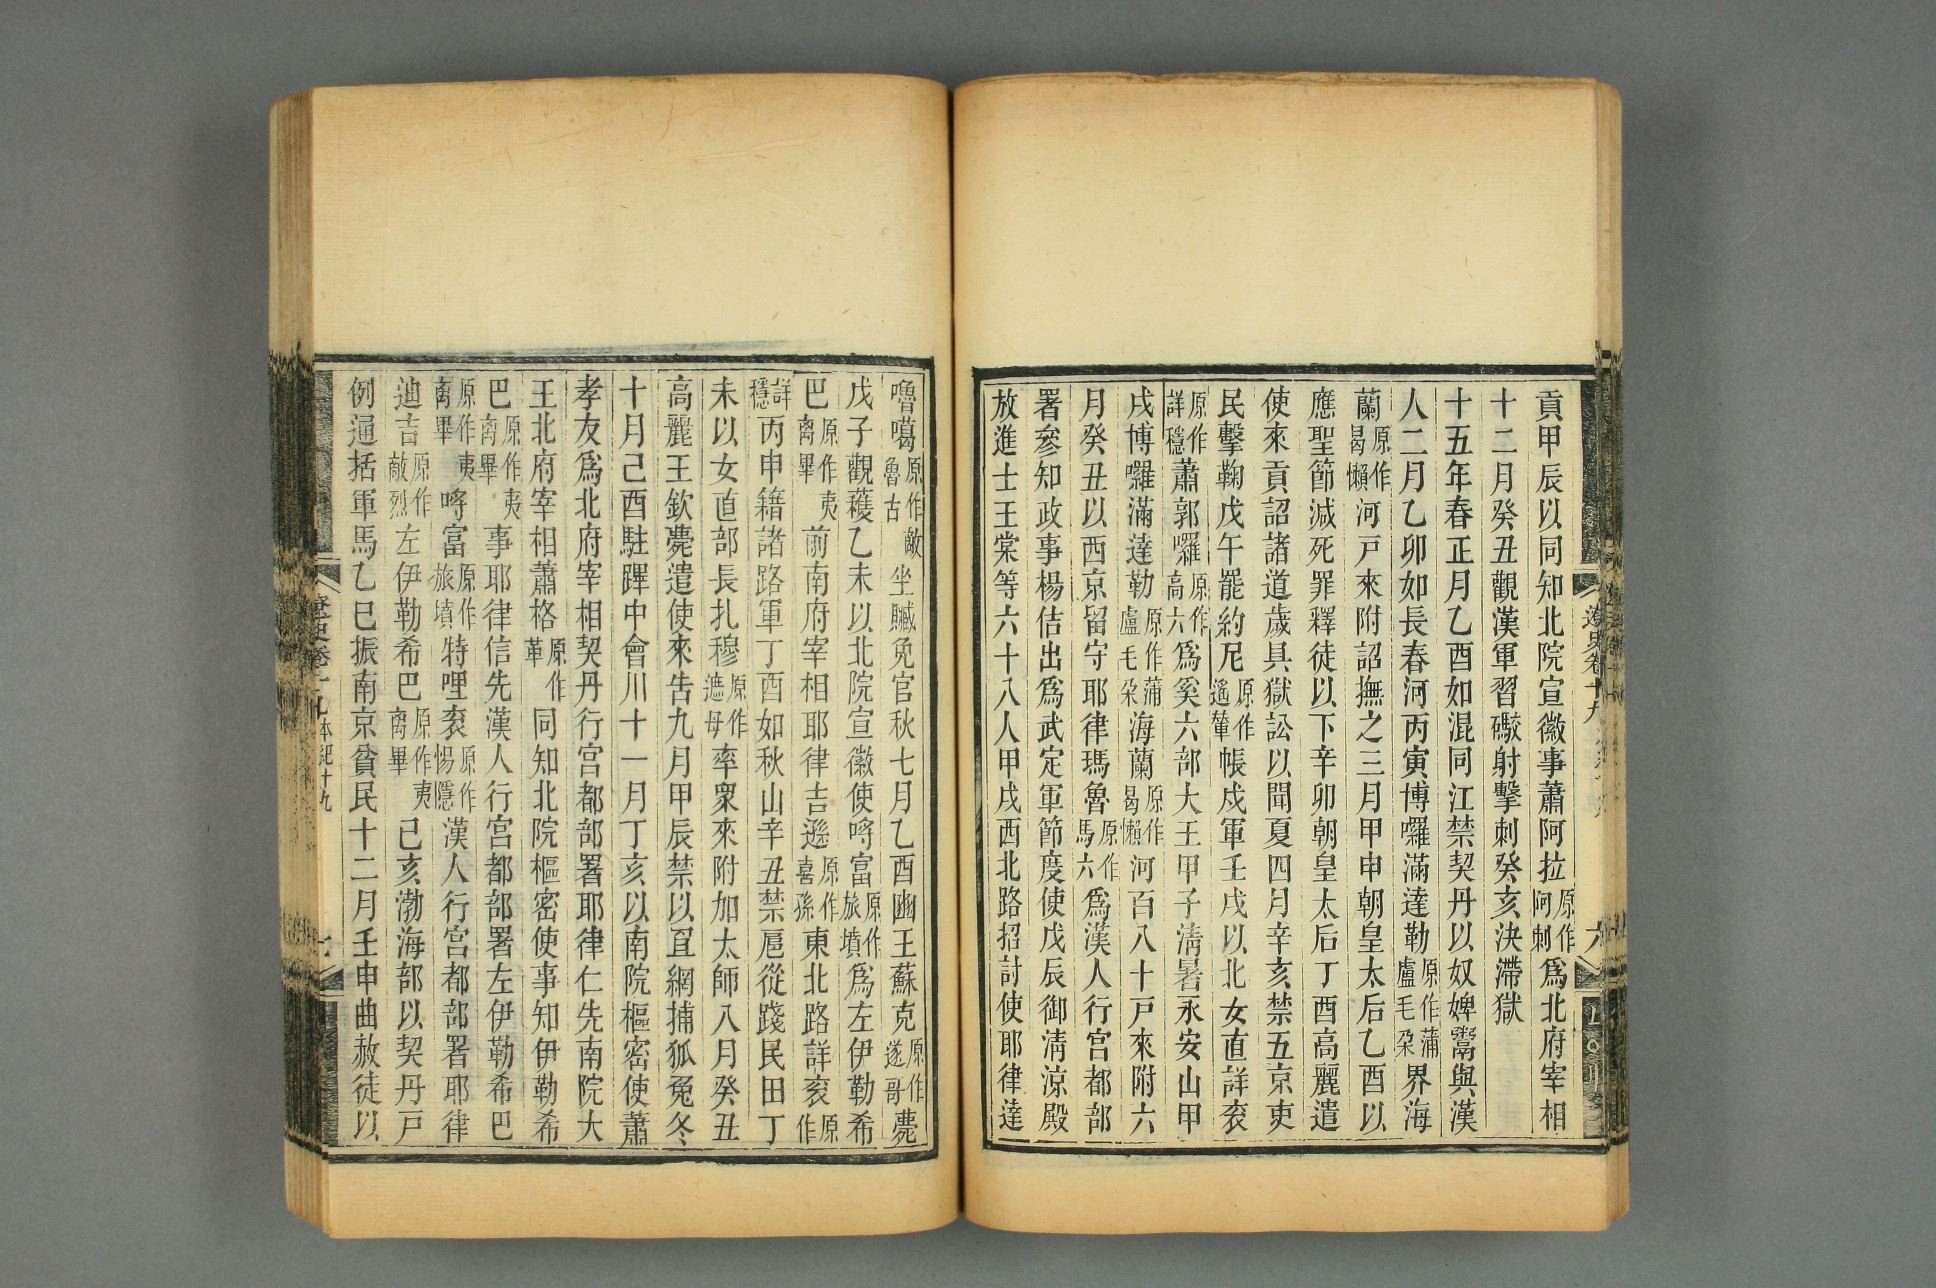 貢甲辰以同知北院宣徽事蕭阿拉原作阿剌爲北府宰相
十二月癸丑觀漢軍習礮射擊刺癸亥決滯獄
十五年春正月乙酉如混同江禁契丹以奴婢鬻與漢
人二月乙卯如長春河丙寅博囉滿達勒原作蒲盧毛朶界海
蘭原作曷懶河戸來附詔撫之三月甲申朝皇太后乙酉以
應聖節減死罪釋徒以下辛卯朝皇太后丁酉高麗遣
使來貢詔諸道歲具獄訟以聞夏四月辛亥禁五京吏
民擊鞠戊午罷約尼原作遙輦帳戍軍壬戌以北女直詳衮
原作詳穩蕭郭囉原作高六爲奚六部大王甲子清暑永安山甲
戌博囉滿達勒原作蒲盧毛朶海蘭原作曷懶河百八十戸來附六
月癸丑以西京留守耶律瑪魯原作馬六爲漢人行宮都部
署參知政事楊佶出爲武定軍節度使戊辰御清涼殿
放進士王棠等六十八人甲戌西北路招討使耶律達
遼史卷十九
六
嚕噶原作敵魯古坐贓免官秋七月乙酉豳王蘇克原作遂哥薨
戊子觀穫乙未以北院宣徽使哷富原作旅墳爲左伊勒希
巴原作夷离畢前南府宰相耶律吉遜原作喜孫東北路詳衮原作
詳穩丙申籍諸路軍丁酉如秋山辛丑禁扈從踐民田丁
未以女直部長扎穆原作遮母率衆來附加太師八月癸丑
高麗王欽薨遣使來告九月甲辰禁以罝網捕狐兔冬
十月己酉駐蹕中會川十一月丁亥以南院樞密使蕭
孝友爲北府宰相契丹行宮都部署耶律仁先南院大
王北府宰相蕭格原作革同知北院樞密使事知伊勒希
巴原作夷离畢事耶律信先漢人行宮都部署左伊勒希巴
原作夷离畢哷富原作旅墳特哩衮原作惕隱漢人行宮都部署耶律
迪吉原作敵烈左伊勒希巴原作夷离畢己亥渤海部以契丹戸
例通括軍馬乙巳振南京貧民十二月壬申曲赦徒以
遼史卷十九 本紀十九
七